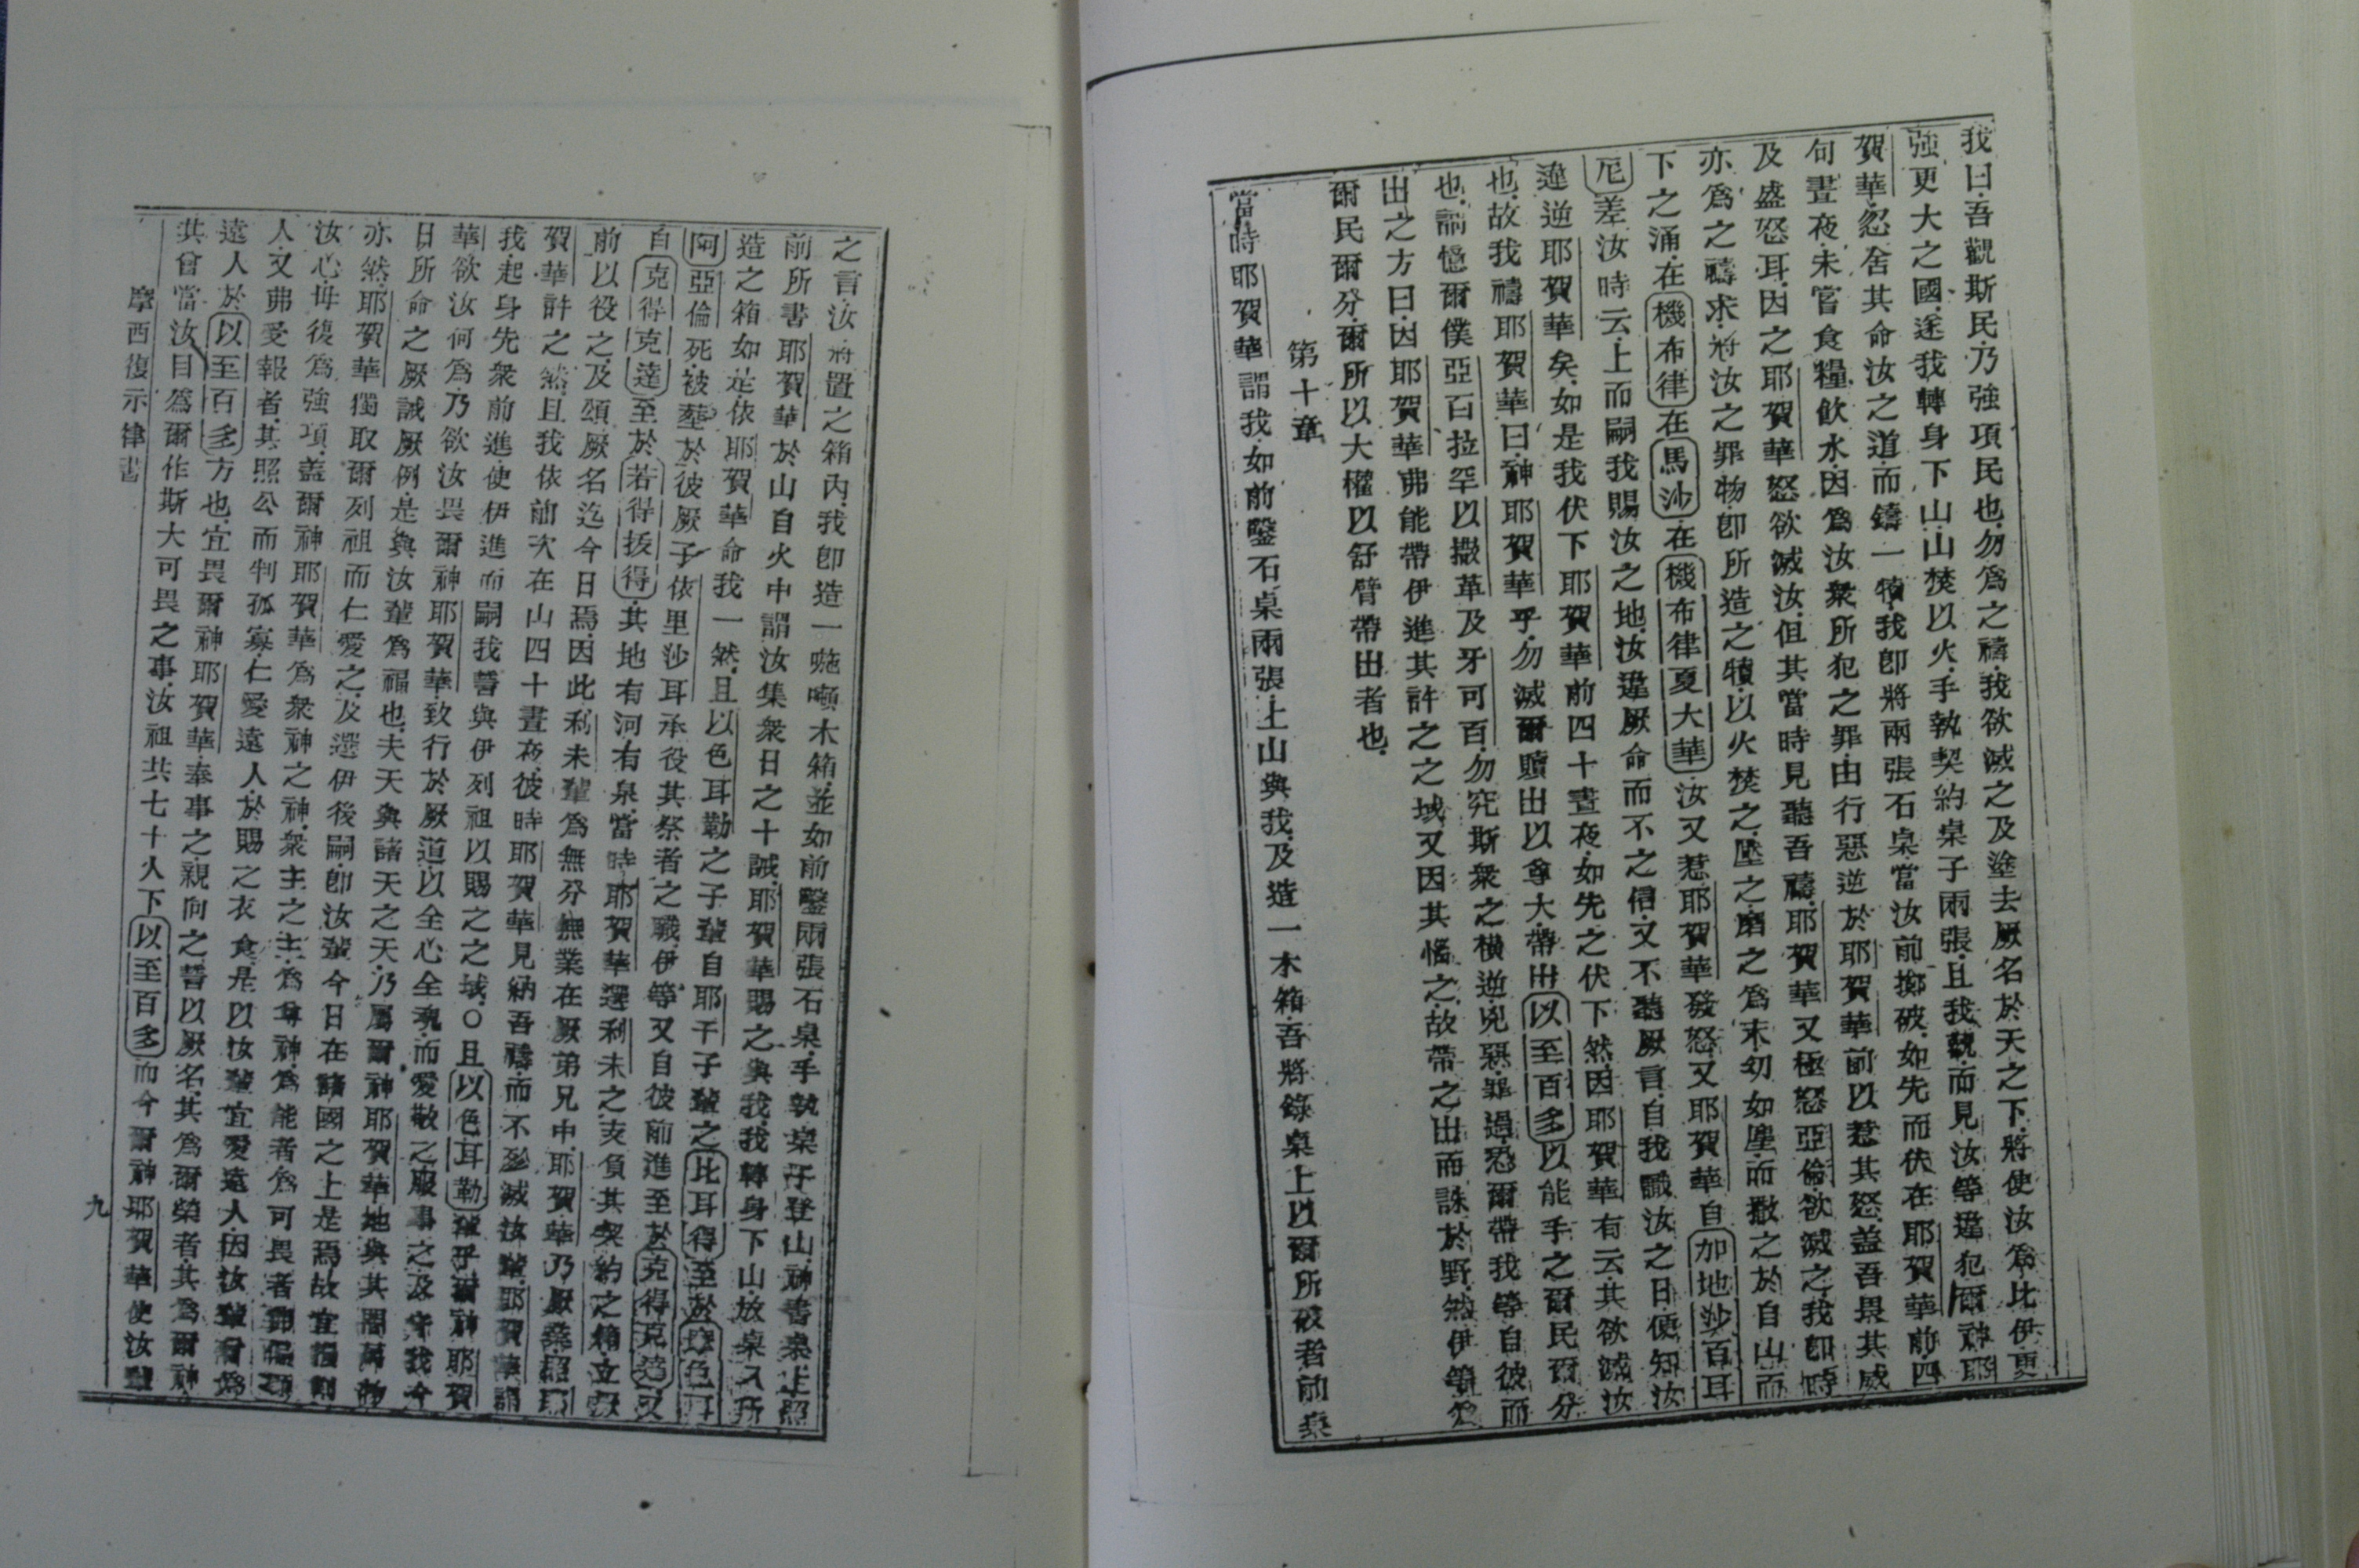 我曰吾觀斯民乃強項民也勿爲之禱我欲滅之及塗去厥名於天之下將使汝爲比伊更
強更大之國遂我轉身下山山焚以火手執契約桌子兩張且我觀而見汝等違犯爾神耶
賀華忽舍其命汝之道而鑄一犢我卽將兩張石桌當汝前擲破如先而伏在耶賀華前四
旬晝夜未嘗食糧飲水因爲汝衆所犯之罪由行惡逆於耶賀華前以惹其怒蓋吾畏其威
及盛怒耳因之耶賀華怒欲滅汝但其當時見聽吾禱耶賀華又極怒亞倫欲滅之我卽時
亦爲之禱求將汝之罪物卽所造之犢以火焚之壓之磨之爲末幼如塵而撒之於自山而
下之涌在機布律在馬沙在機布律夏大華汝又惹耶賀華發怒又耶賀華自加地沙百耳
尼差汝時云上而嗣我賜汝之地汝違厥命而不之信又不聽厥言自我識汝之日便知汝
違逆耶賀華矣如是我伏下耶賀華前四十晝夜如先之伏下然因耶賀華有云其欲滅汝
也故我禱耶賀華曰神耶賀華乎勿滅爾贖出以尊大帶出以至百多以能手之爾民爾分
也請憶爾僕亞百拉罕以撒革及牙可百勿究斯衆之橫逆兇惡罪過恐爾帶我等自彼而
出之方曰因耶賀華弗能帶伊進其許之之域又因其惱之故帶之出而誅於野然伊等爲
爾民爾分爾所以大權以舒臂帶出者也
第十章
當時耶賀華謂我如前鑿石桌兩張上山與我及造一木箱吾將錄桌上以爾所破者前桌
之言汝將置之箱內我卽造一㗒㘔木箱並如前鑿兩張石桌手執桌子登山神書桌上照
前所書耶賀華於山自火中謂汝集衆日之十誡耶賀華賜之與我我轉身下山放桌入所
造之箱如是依耶賀華命我一然且以色耳勒之子輩自耶干子輩之比耳得至於摩色耳
阿亞倫死被葬於彼厥子依里沙耳承役其祭者之職伊等又自彼前進至於克得克達又
自克得克達至於若得拔得其地有河有泉當時耶賀華選利未之支負其契約之箱立厥
前以役之及頌厥名迄今日焉因此利未輩爲無分無業在厥弟兄中耶賀華乃厥業照耶
賀華許之然且我依前次在山四十晝夜彼時耶賀華見納吾禱而不殄滅汝輩耶賀華謂
我起身先衆前進使伊進而嗣我誓與伊列祖以賜之之域○且以色耳勒輩乎爾神耶賀
華欲汝何爲乃欲汝畏爾神耶賀華致行於厥道以全心全魂而愛敬之服事之及守我今
日所命之厥誡厥例是與汝輩爲福也夫天與諸天之天乃屬爾神耶賀華地與其間萬物
亦然耶賀華獨取爾列祖而仁愛之及選伊後嗣卽汝輩今日在諸國之上是焉故宜損割
汝心毋復爲強項蓋爾神耶賀華爲衆神之神衆主之主爲尊神爲能者爲可畏者弗偏視
人又弗受報者其照公而判孤寡仁愛遠人於賜之衣食是以汝輩宜愛遠人因汝輩曾爲
遠人於以至百多方也宜畏爾神耶賀華奉事之親向之誓以厥名其爲爾榮者其爲爾神
其曾當汝目爲爾作斯大可畏之事汝祖共七十人下以至百多而今爾神耶賀華使汝輩
摩西復示律書
九